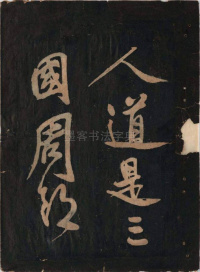 人道是三
國周郎
墨客书法字典